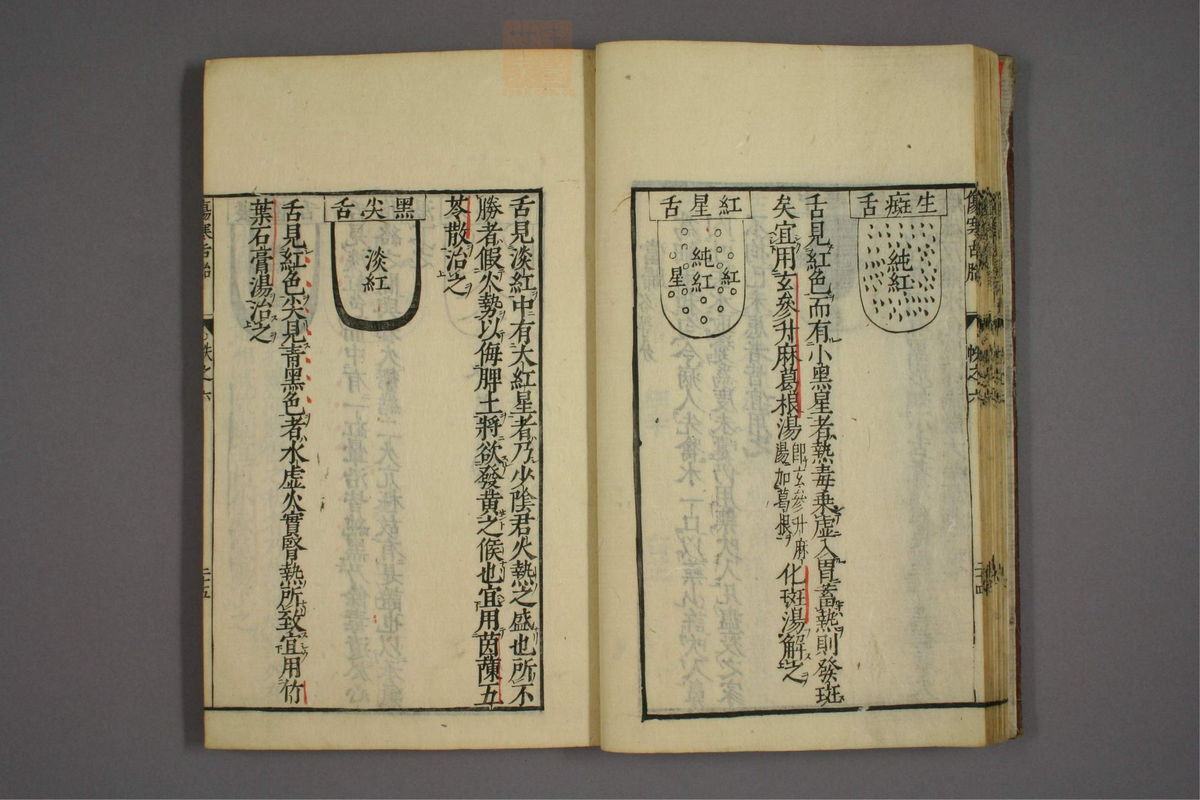 生癍舌
純紅
舌見紅色而有小黑星者熱毒乗虚入胃蓄熱則發斑
矣宜用玄參升麻葛根湯
即玄參升麻
湯加葛根
化斑湯解之
紅星舌
紅
純紅
星
舌見淡紅中有大紅星者乃少陰君火熱之盛也所不
勝者假火勢以侮脾土將欲發黄之候也宜用茵蔯五
苓散治之
黑尖舌
淡紅
舌見紅色尖見青黑色者水虚火實腎熱所致宜用竹
葉石膏湯治之
傷寒舌胎
帙之六
二十五